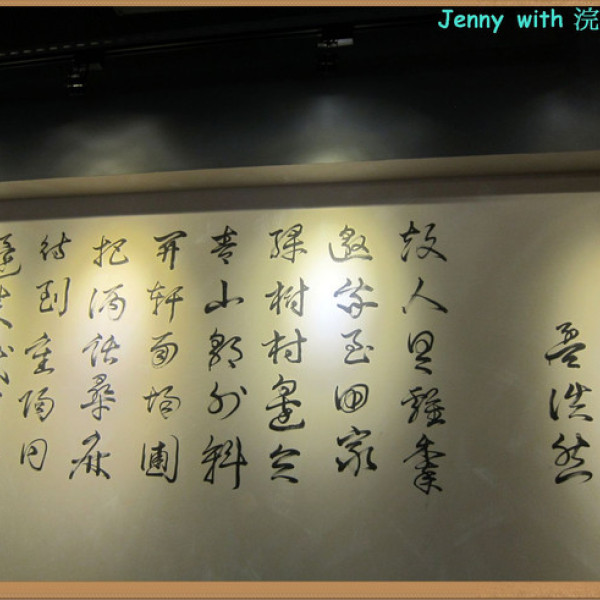 Jenny with 浣
孟浩然
故人具雞黍
邀我至田家
綠樹村邊合
青山郭外斜
開軒面場圃
把酒話桑麻
待到重陽日
還來就